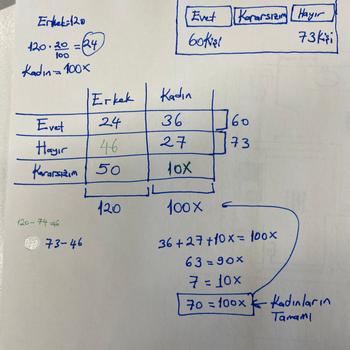 Erkek=120
120 · 20/100 = 24
Kadın = 100x
Evet Kararsızım Hayır
60 Kişi 73 Kişi
Erkek Kadın
Evet 24 36 60
Hayır 46 27 73
Kararsızım 50 10x
120 100x
120-74=46
73-46
36+27+10x=100x
63=90x
7=10x
70=100x ← Kadınların
Tamamı